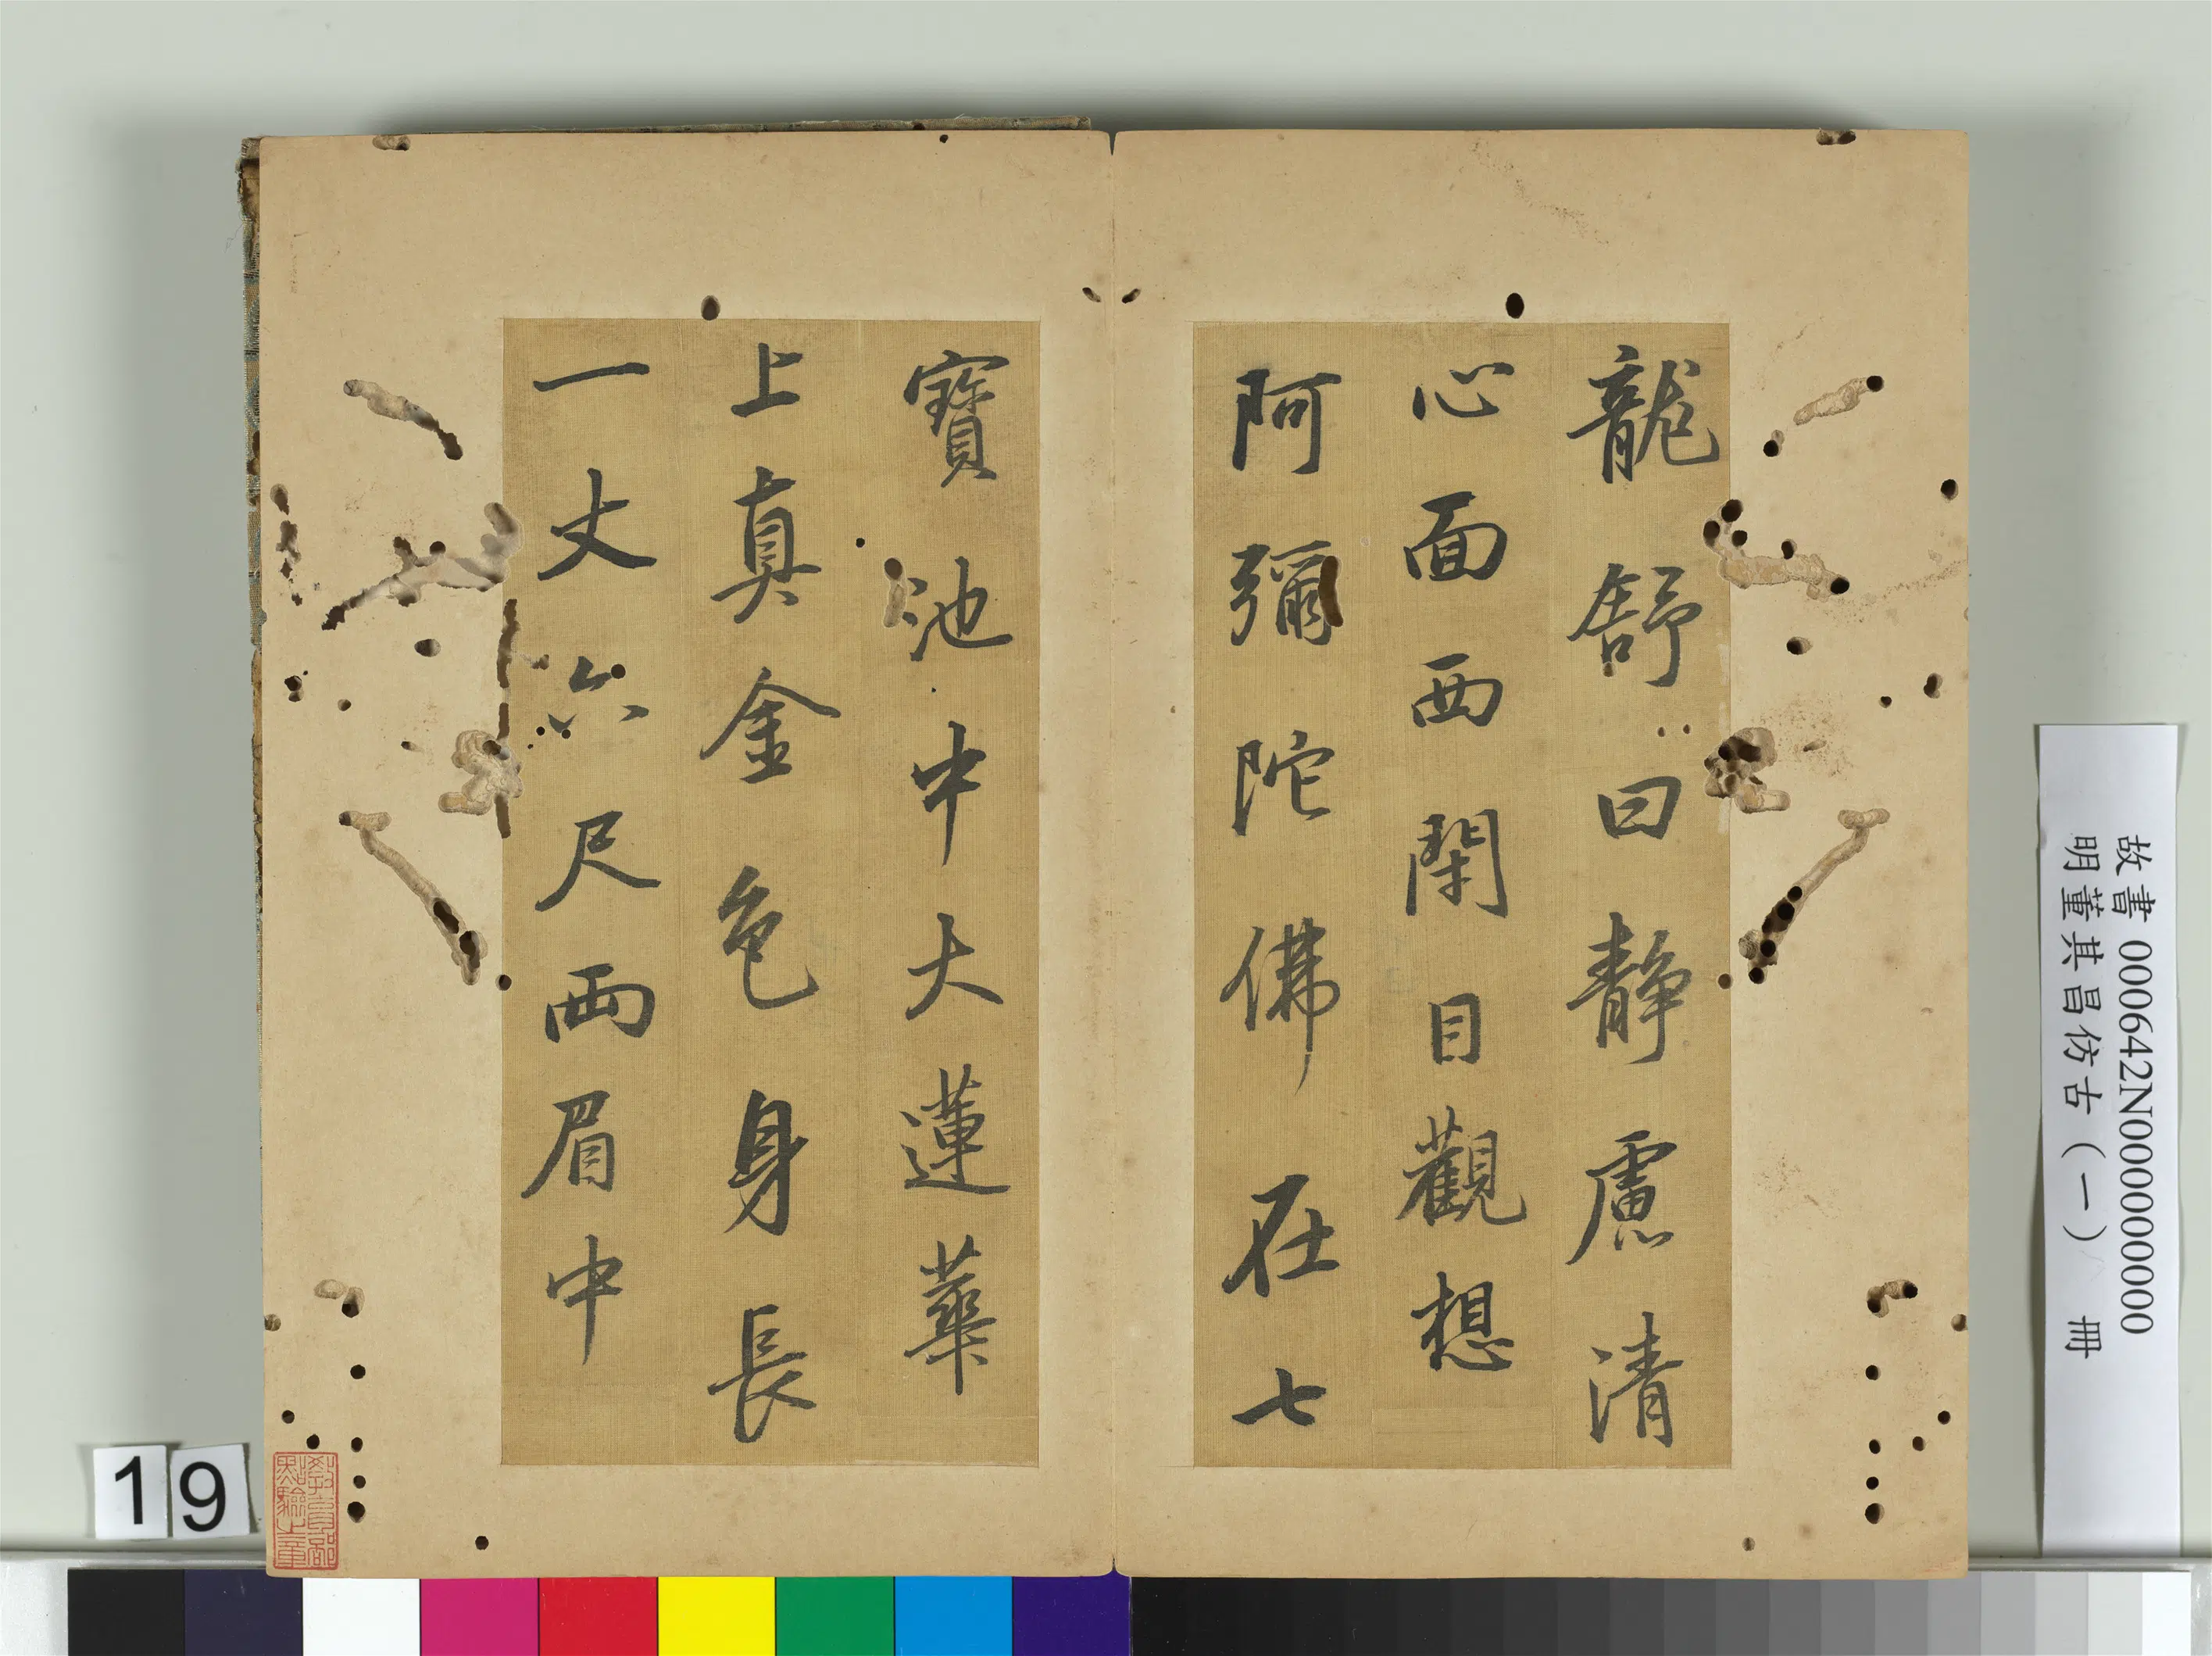 龍舒曰靜慮清
心面西閉目觀想
阿彌陀佛在七
寶池中大蓮華
上真金色身長
一丈六尺兩眉中
故書 000642N000000000
明董其昌仿古（一） 冊
19
教育部
點驗之章